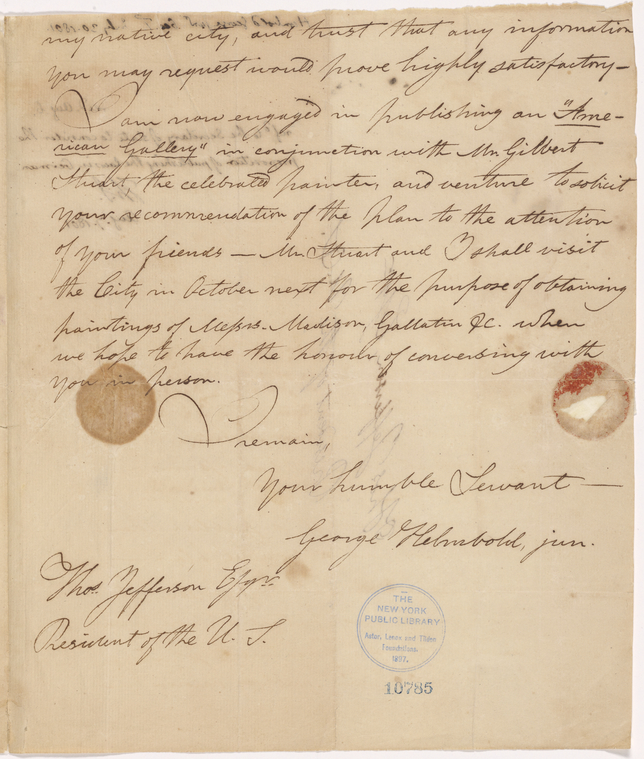 my native city, and trust that any information
you may request would prove highly satisfactory—
I am now engaged in publishing an "Ame-
rican Gallery" in conjunction with Mr. Gilbert
Stuart, the celebrated painter, and venture to solicit
your recommendation of the plan to the attention
of your friends — Mr. Stuart and I shall visit
the City in October next for the purpose of obtaining
paintings of Messrs. Madison, Gallatin &c. when
we hope to have the honour of conversing with
you in person.
I remain,
Your humble Servant —
George Helmbold, jun.
Thos. Jefferson Esqr.
President of the U. S.
THE
NEW YORK
PUBLIC LIBRARY
Astor, Lenox and Tilden
Foundations.
1897.
10785